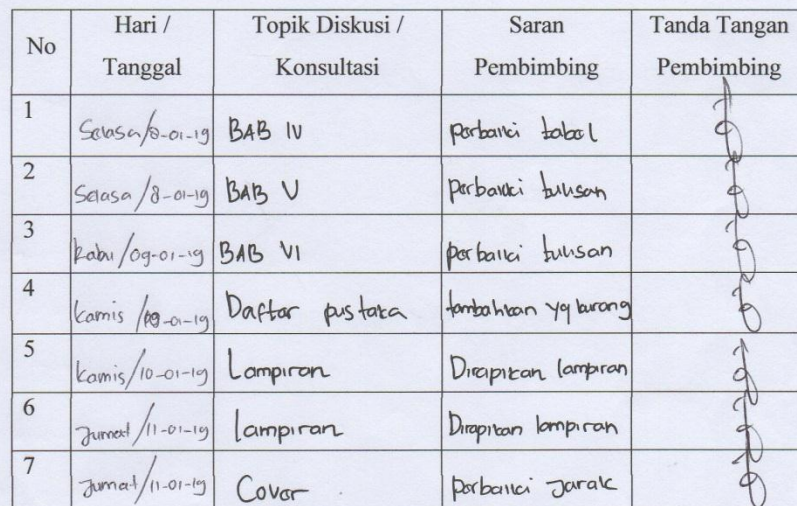 No Hari / Tanggal Topik Diskusi / Konsultasi Saran Pembimbing Tanda Tangan Pembimbing
1 Selasa/8-01-19 BAB IV perbaiki tabel
2 Selasa/8-01-19 BAB V perbaiki tulisan
3 Rabu/09-01-19 BAB VI perbaiki tulisan
4 Kamis/ -01-19 Daftar pustaka tambahkan yg kurang
5 Kamis/10-01-19 Lampiran Dirapikan lampiran
6 Jumat/11-01-19 Lampiran Dirapikan lampiran
7 Jumat/11-01-19 Cover perbaiki Jarak